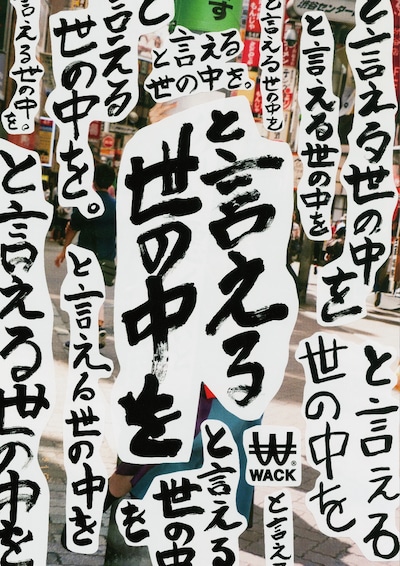 と言える世の中を
渋谷センター
と言える世の中を
と言える世の中を
す
と言える
世の中を。
と
言える
世の中を。
言える世の中を。
と言える
世の中を
と言える
世の中を
と言える世の中を
と言える世の中を
WACK
®
と言える
と言える
世の中
を